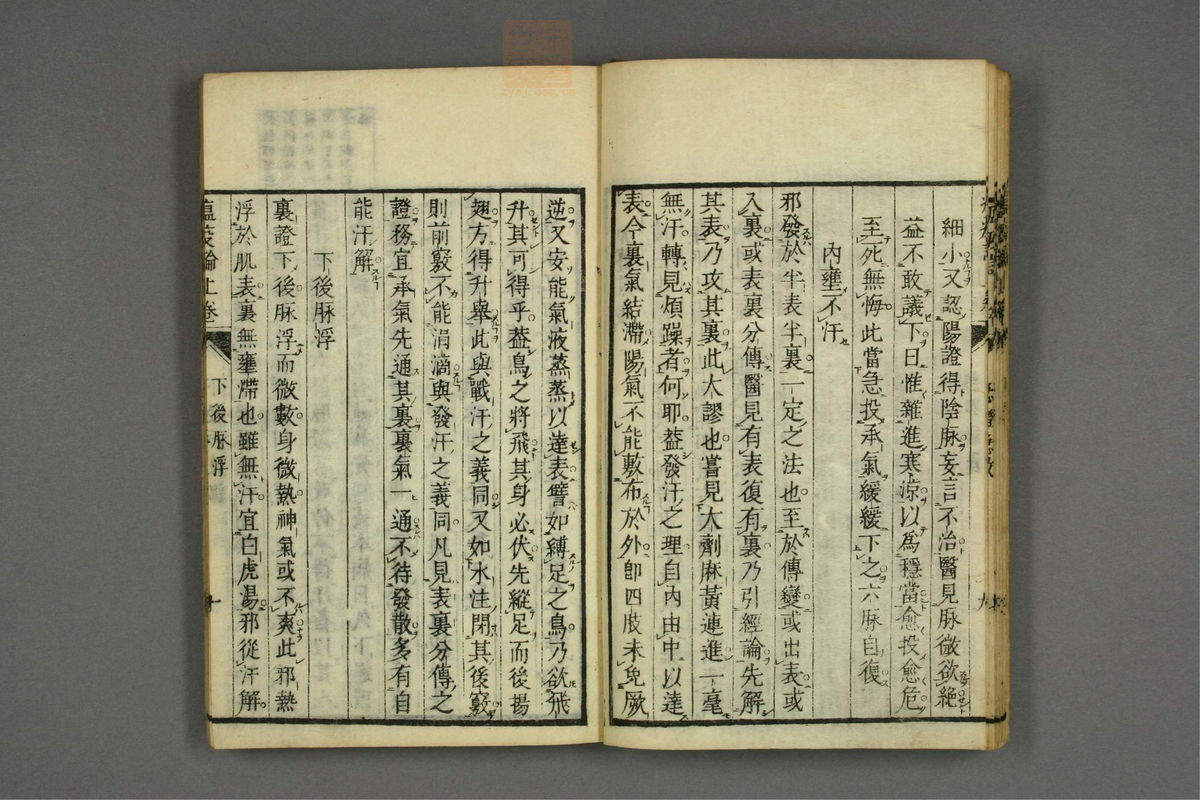 細小又認陽證得陰脉妄言不治醫見脉微欲絕
益不敢議下日惟雜進寒涼以為穩當愈投愈危
至死無悔此當急投承氣緩緩下之六脉自復
内壅不汗
邪發於半表半裏一定之法也至於傳變或出表或
入裏或表裏分傳醫見有表復有裏乃引經論先解
其表乃攻其裏此大謬也嘗見大劑麻黃連進一毫
無汗轉見煩躁者何耶蓋發汗之理自内由中以達
表今裏氣結滯陽氣不能敷布於外即四肢未免厥
逆又安能氣液蒸蒸以達表譬如縛足之鳥乃欲飛
升其可得乎蓋鳥之將飛其身必伏先縱足而後揚
翅方得升舉此與戰汗之義同又如水注閉其後竅
則前竅不能涓滴與發汗之義同凡見表裏分傳之
證務宜承氣先通其裏裏氣一通不待發散多有自
能汗解
下後脉浮
裏證下後脉浮而微數身微熱神氣或不爽此邪熱
浮於肌表裏無壅滯也雖無汗宜白虎湯邪從汗解
瘟疫論上卷
下後脉浮